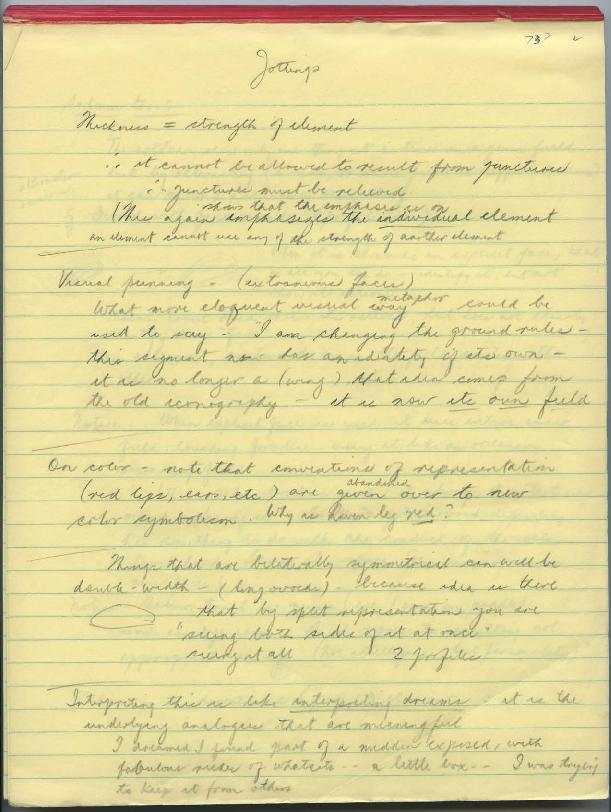 73?
Jottings
Thickness = strength of element
∴ it cannot be allowed to result from junctures
∴ junctures must be relieved
shows that the emphasis is on
(This again emphasizes the individual element
an element cannot use any of the strength of another element
Visual punning - (extraneous faces)
metaphor
What more eloquent visual way could be
used to say - "I am changing the ground rules -
this segment now has an identity of its own -
it is no longer a (wing) that idea comes from
the old iconography - it is now its own field
On color - note that conventions of representation
abandoned
(red lips, ears, etc) are given over to new
color symbolism. Why is Raven leg red?
Things that are bilaterally symmetrical can well be
double-width - (long ovoids) - because idea is there
that by split representation you are
"seeing both sides of it at once"
seeing it all 2 profiles
Interpreting this is like interpreting dreams - it is the
underlying analogies that are meaningful
I dreamed I found part of a midden exposed, with
fabulous of whatsits -- a little box -- I was trying
to keep it from others